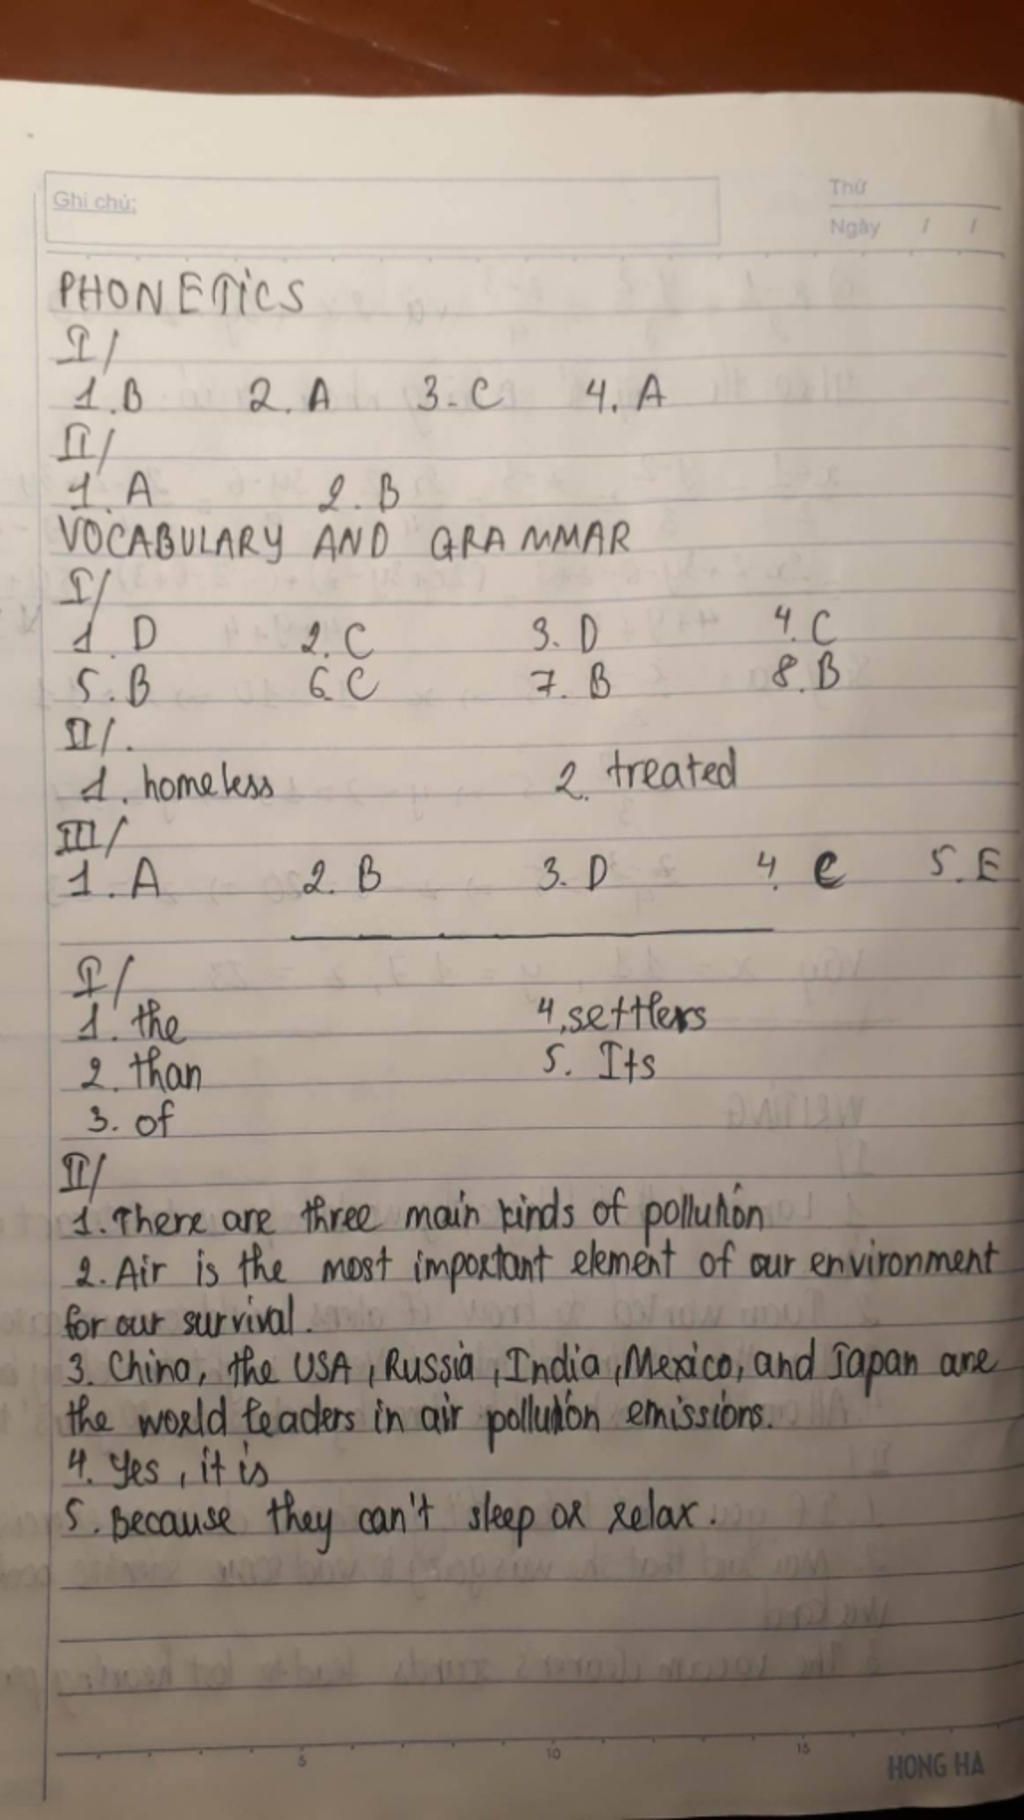 Ghi chú:
Thứ
Ngày / /
PHONETICS
I/
1.B 2. A 3. C 4. A
II/
1. A 2. B
VOCABULARY AND GRAMMAR
I/
1. D 2. C 3. D 4. C
5. B 6. C 7. B 8. B
II/.
1. homeless 2. treated
III/
1. A 2. B 3. D 4. C 5. E
I/
1. the 4. settlers
2. than 5. Its
3. of
II/
1. There are three main kinds of pollution
2. Air is the most important element of our environment
for our survival.
3. China, the USA, Russia, India, Mexico, and Japan are
the world leaders in air pollution emissions.
4. Yes, it is
5. Because they can't sleep or relax.
5 10 15
HONG HA